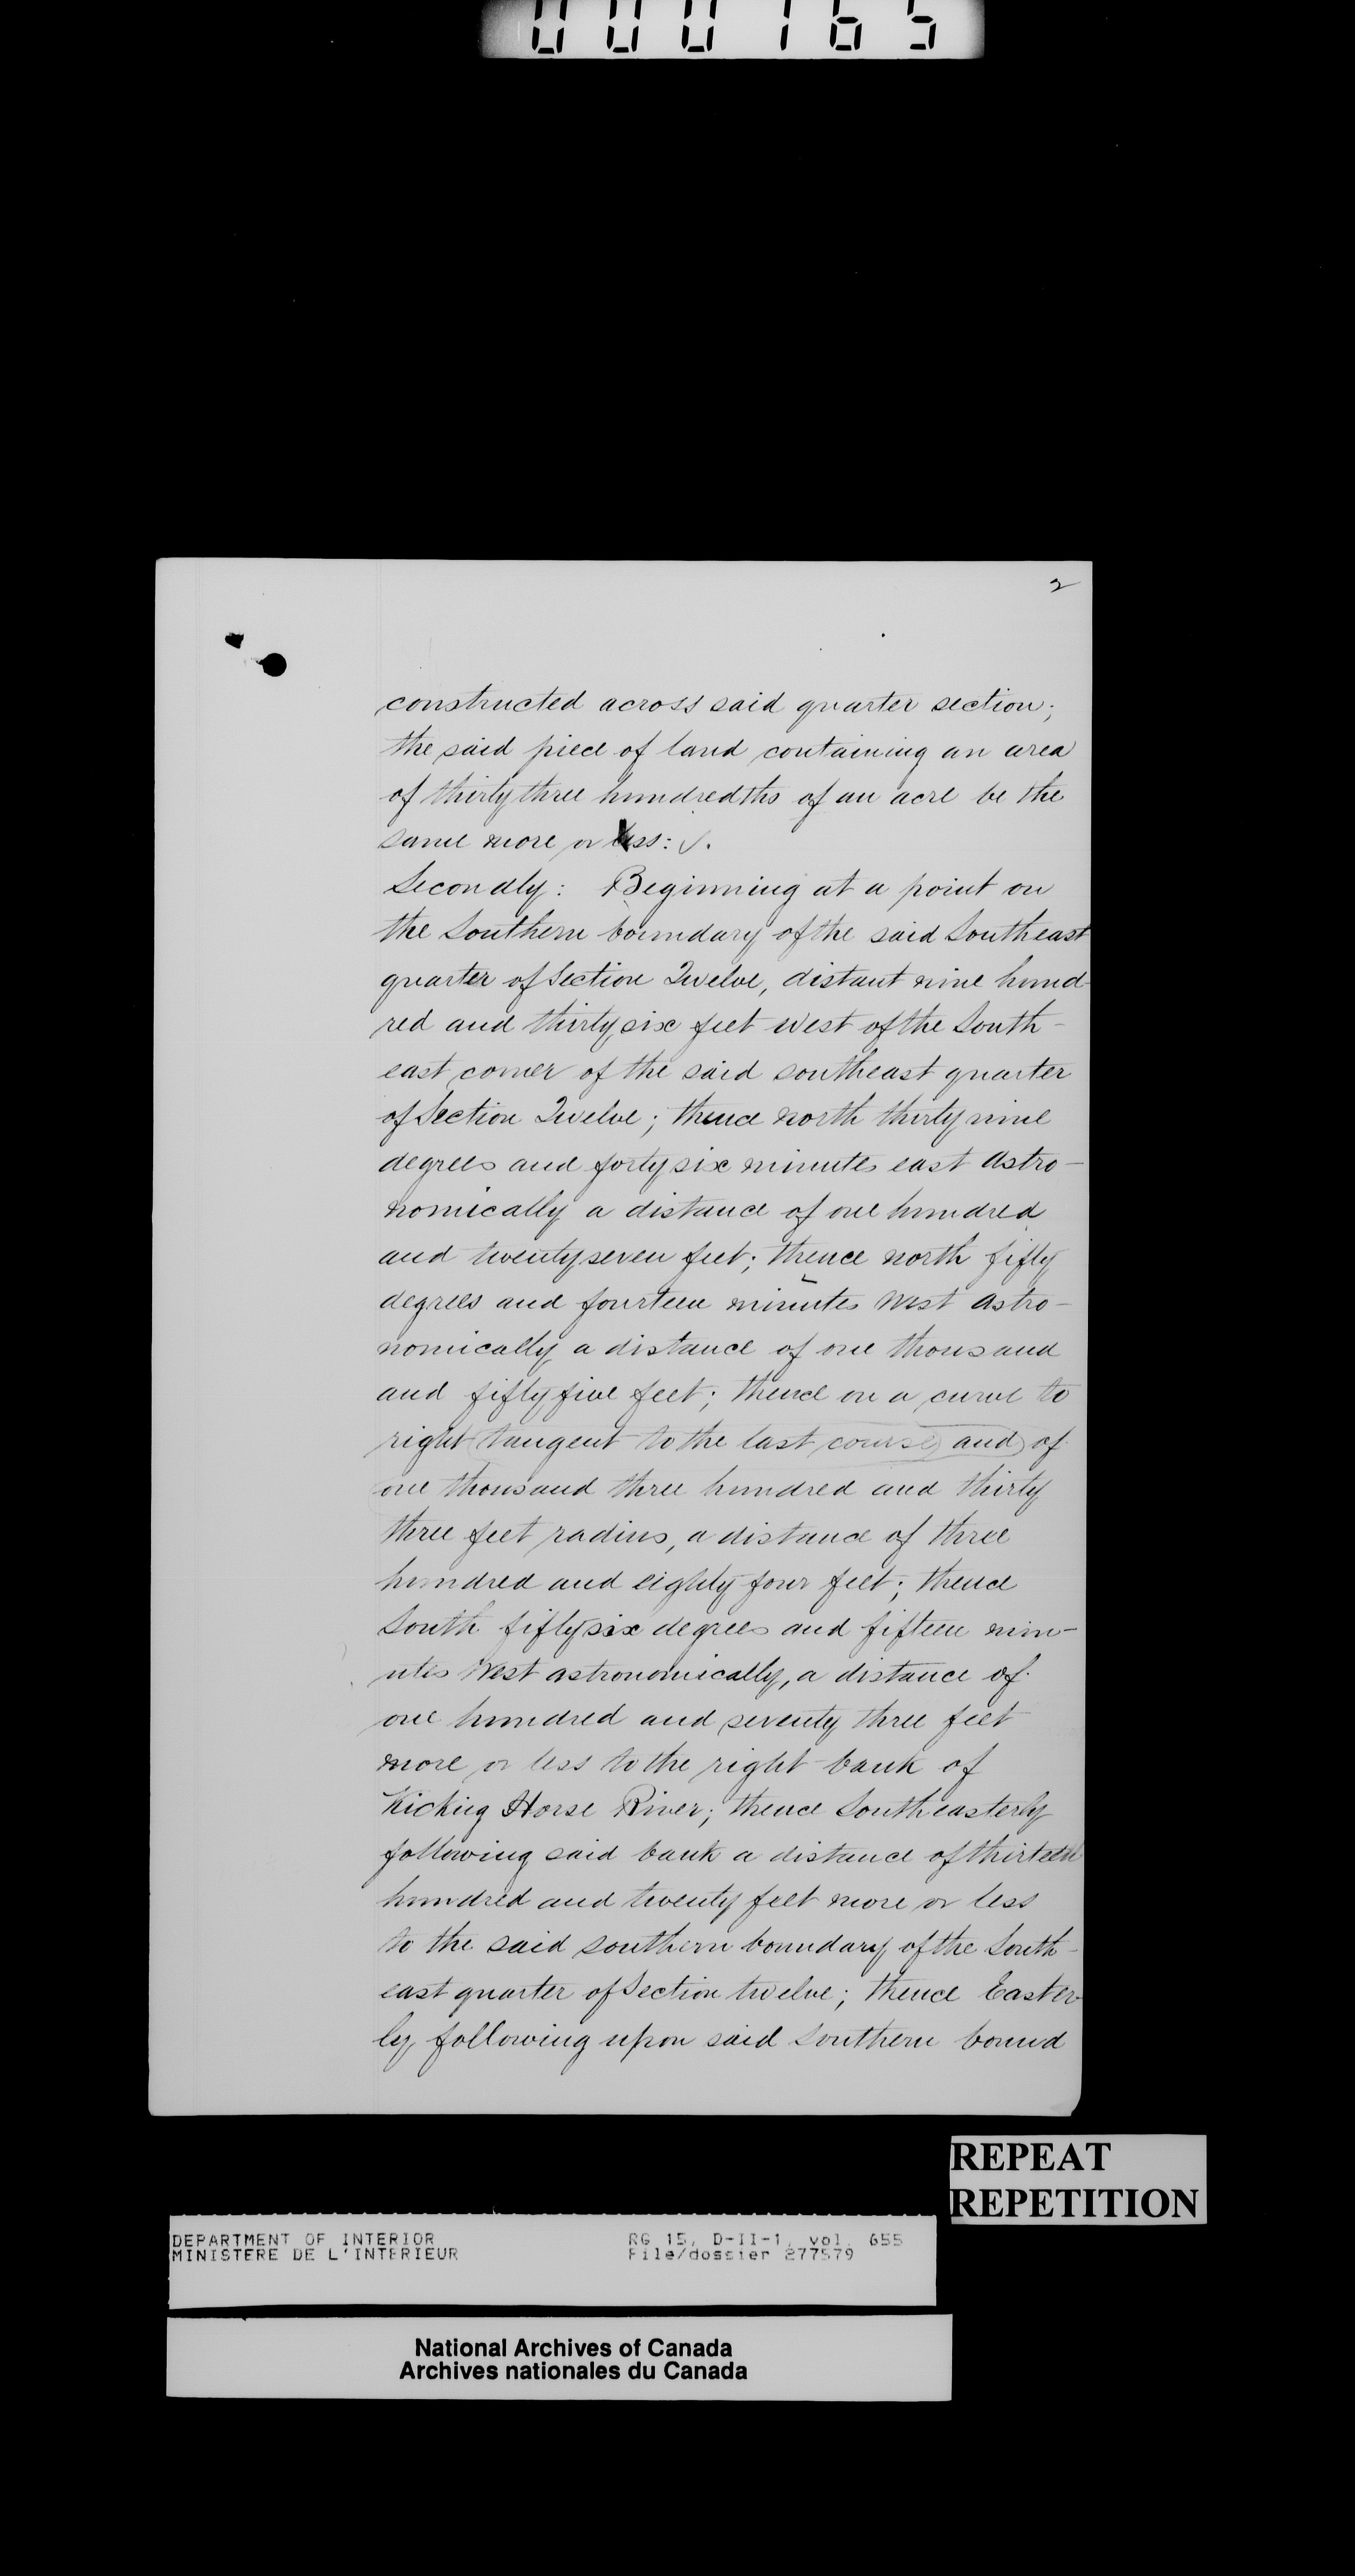 000165
2
constructed across said quarter section;
the said piece of land containing an area
of thirty three hundredths of an acre be the
same more or less:
Secondly: Beginning at a point on
the Southern boundary of the said Southeast
quarter of Section Twelve, distant nine hund-
red and thirty six feet west of the South-
east corner of the said southeast quarter
of Section Twelve; thence north thirty nine
degrees and forty six minutes east Astro-
nomically a distance of one hundred
and twenty seven feet; thence north fifty
degrees and fourteen minutes West Astro-
nomically a distance of one thousand
and fifty five feet; thence on a curve to
right (tangent to the last course) and) of
one thousand three hundred and thirty
three feet radius, a distance of three
hundred and eighty four feet; thence
South fifty six degrees and fifteen min-
utes West astronomically, a distance of
one hundred and seventy three feet
more or less to the right bank of
Kicking Horse River; thence Southeasterly
following said bank a distance of thirteen
hundred and twenty feet more or less
to the said southern boundary of the South-
east quarter of Section twelve; thence Easter-
ly following upon said Southern bound
REPEAT
REPETITION
DEPARTMENT OF INTERIOR RG 15, D-II-1, vol. 655
MINISTERE DE L'INTERIEUR File/dossier 277579
National Archives of Canada
Archives nationales du Canada